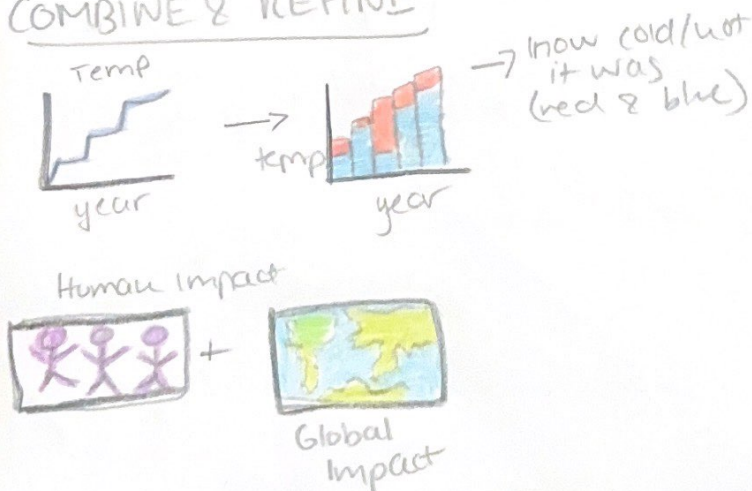 COMBINE & REFINE
Temp
year
temp
year
→ how cold/hot
it was
(red & blue)
Human Impact
+
Global
Impact